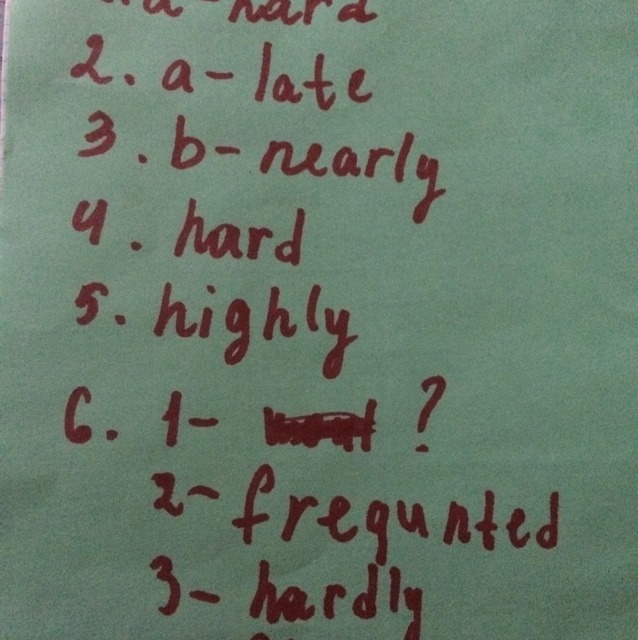 a-hard
2. a-late
3. b-nearly
4. hard
5. highly
6. 1- ?
2- frequnted
3- hardly